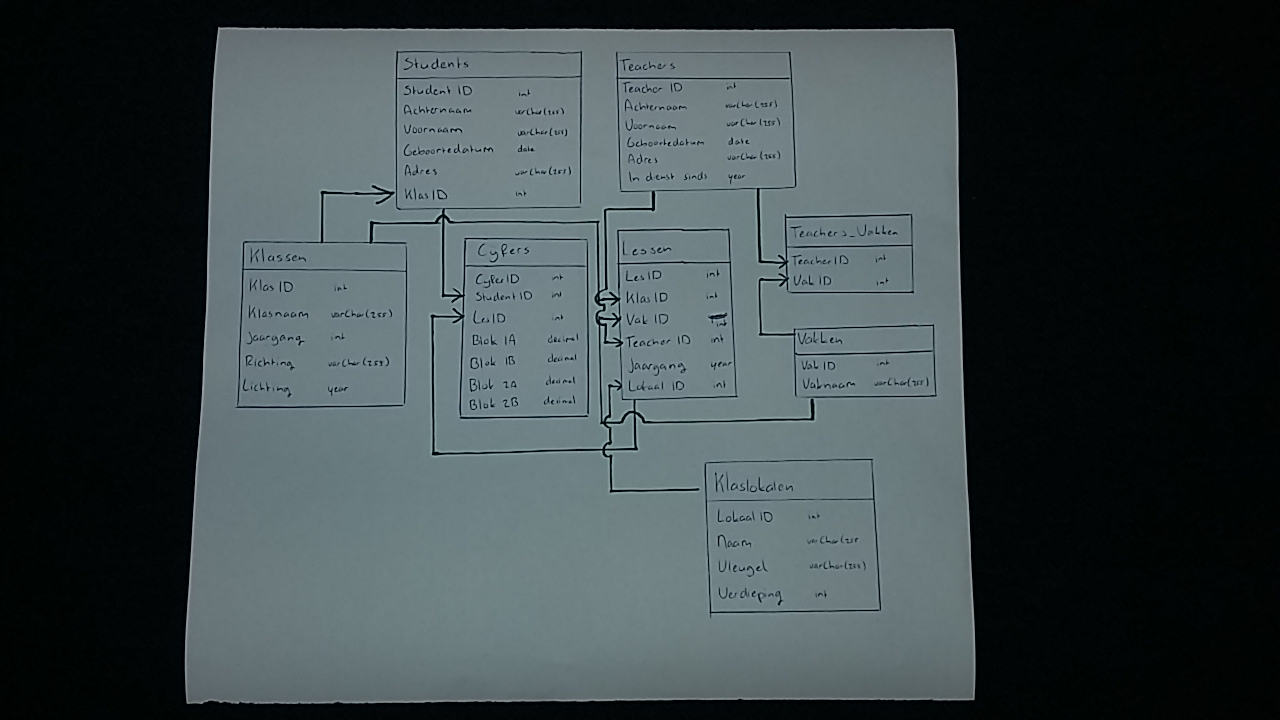 Students
Student ID int
Achternaam varchar(255)
Voornaam varchar(255)
Geboortedatum date
Adres varchar(255)
Klas ID int
Teachers
Teacher ID int
Achternaam varchar(255)
Voornaam varchar(255)
Geboortedatum date
Adres varchar(255)
In dienst sinds year
Klassen
Klas ID int
Klasnaam varchar(255)
Jaargang int
Richting varchar(255)
Lichting year
Cyfers
Cyfer ID int
Student ID int
Les ID int
Blok 1A decimal
Blok 1B decimal
Blok 2A decimal
Blok 2B decimal
Lessen
Les ID int
Klas ID int
Vak ID int
Teacher ID int
Jaargang year
Lokaal ID int
Teachers_Vakken
Teacher ID int
Vak ID int
Vakken
Vak ID int
Vaknaam varchar(255)
Klaslokalen
Lokaal ID int
Naam varchar(255
Vleugel varchar(255)
Verdieping int